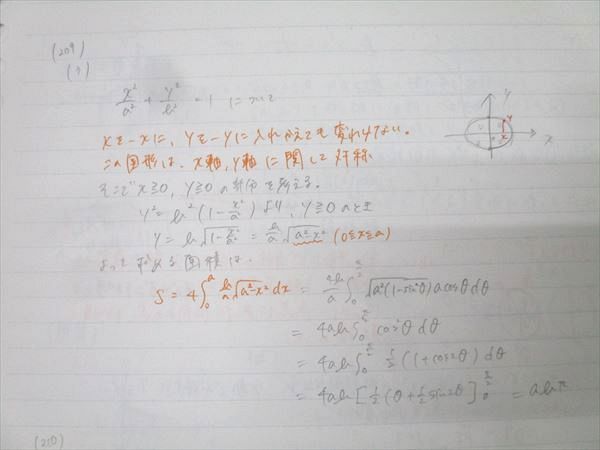 (209)
(1)
x²/a² + y²/b² = 1 について
xを-xに、yを-yに入れかえても変わらない。
この図形は、x軸,y軸に関して対称
そこで x≧0, y≧0 の部分を考える。
y² = b²(1-x²/a²) より、y≧0 のとき
y = b√(1-x²/a²) = b/a √(a²-x²) (0≦x≦a)
よって求める面積は、
S = 4∫₀ᵃ b/a √(a²-x²) dx = 4b/a ∫₀^(π/2) √(a²(1-sin²θ)) a cosθ dθ
= 4ab∫₀^(π/2) cos²θ dθ
= 4ab∫₀^(π/2) 1/2 (1+cos2θ) dθ
= 4ab[1/2(θ+1/2 sin2θ)]₀^(π/2) = abπ
y
x
y
x
(210)